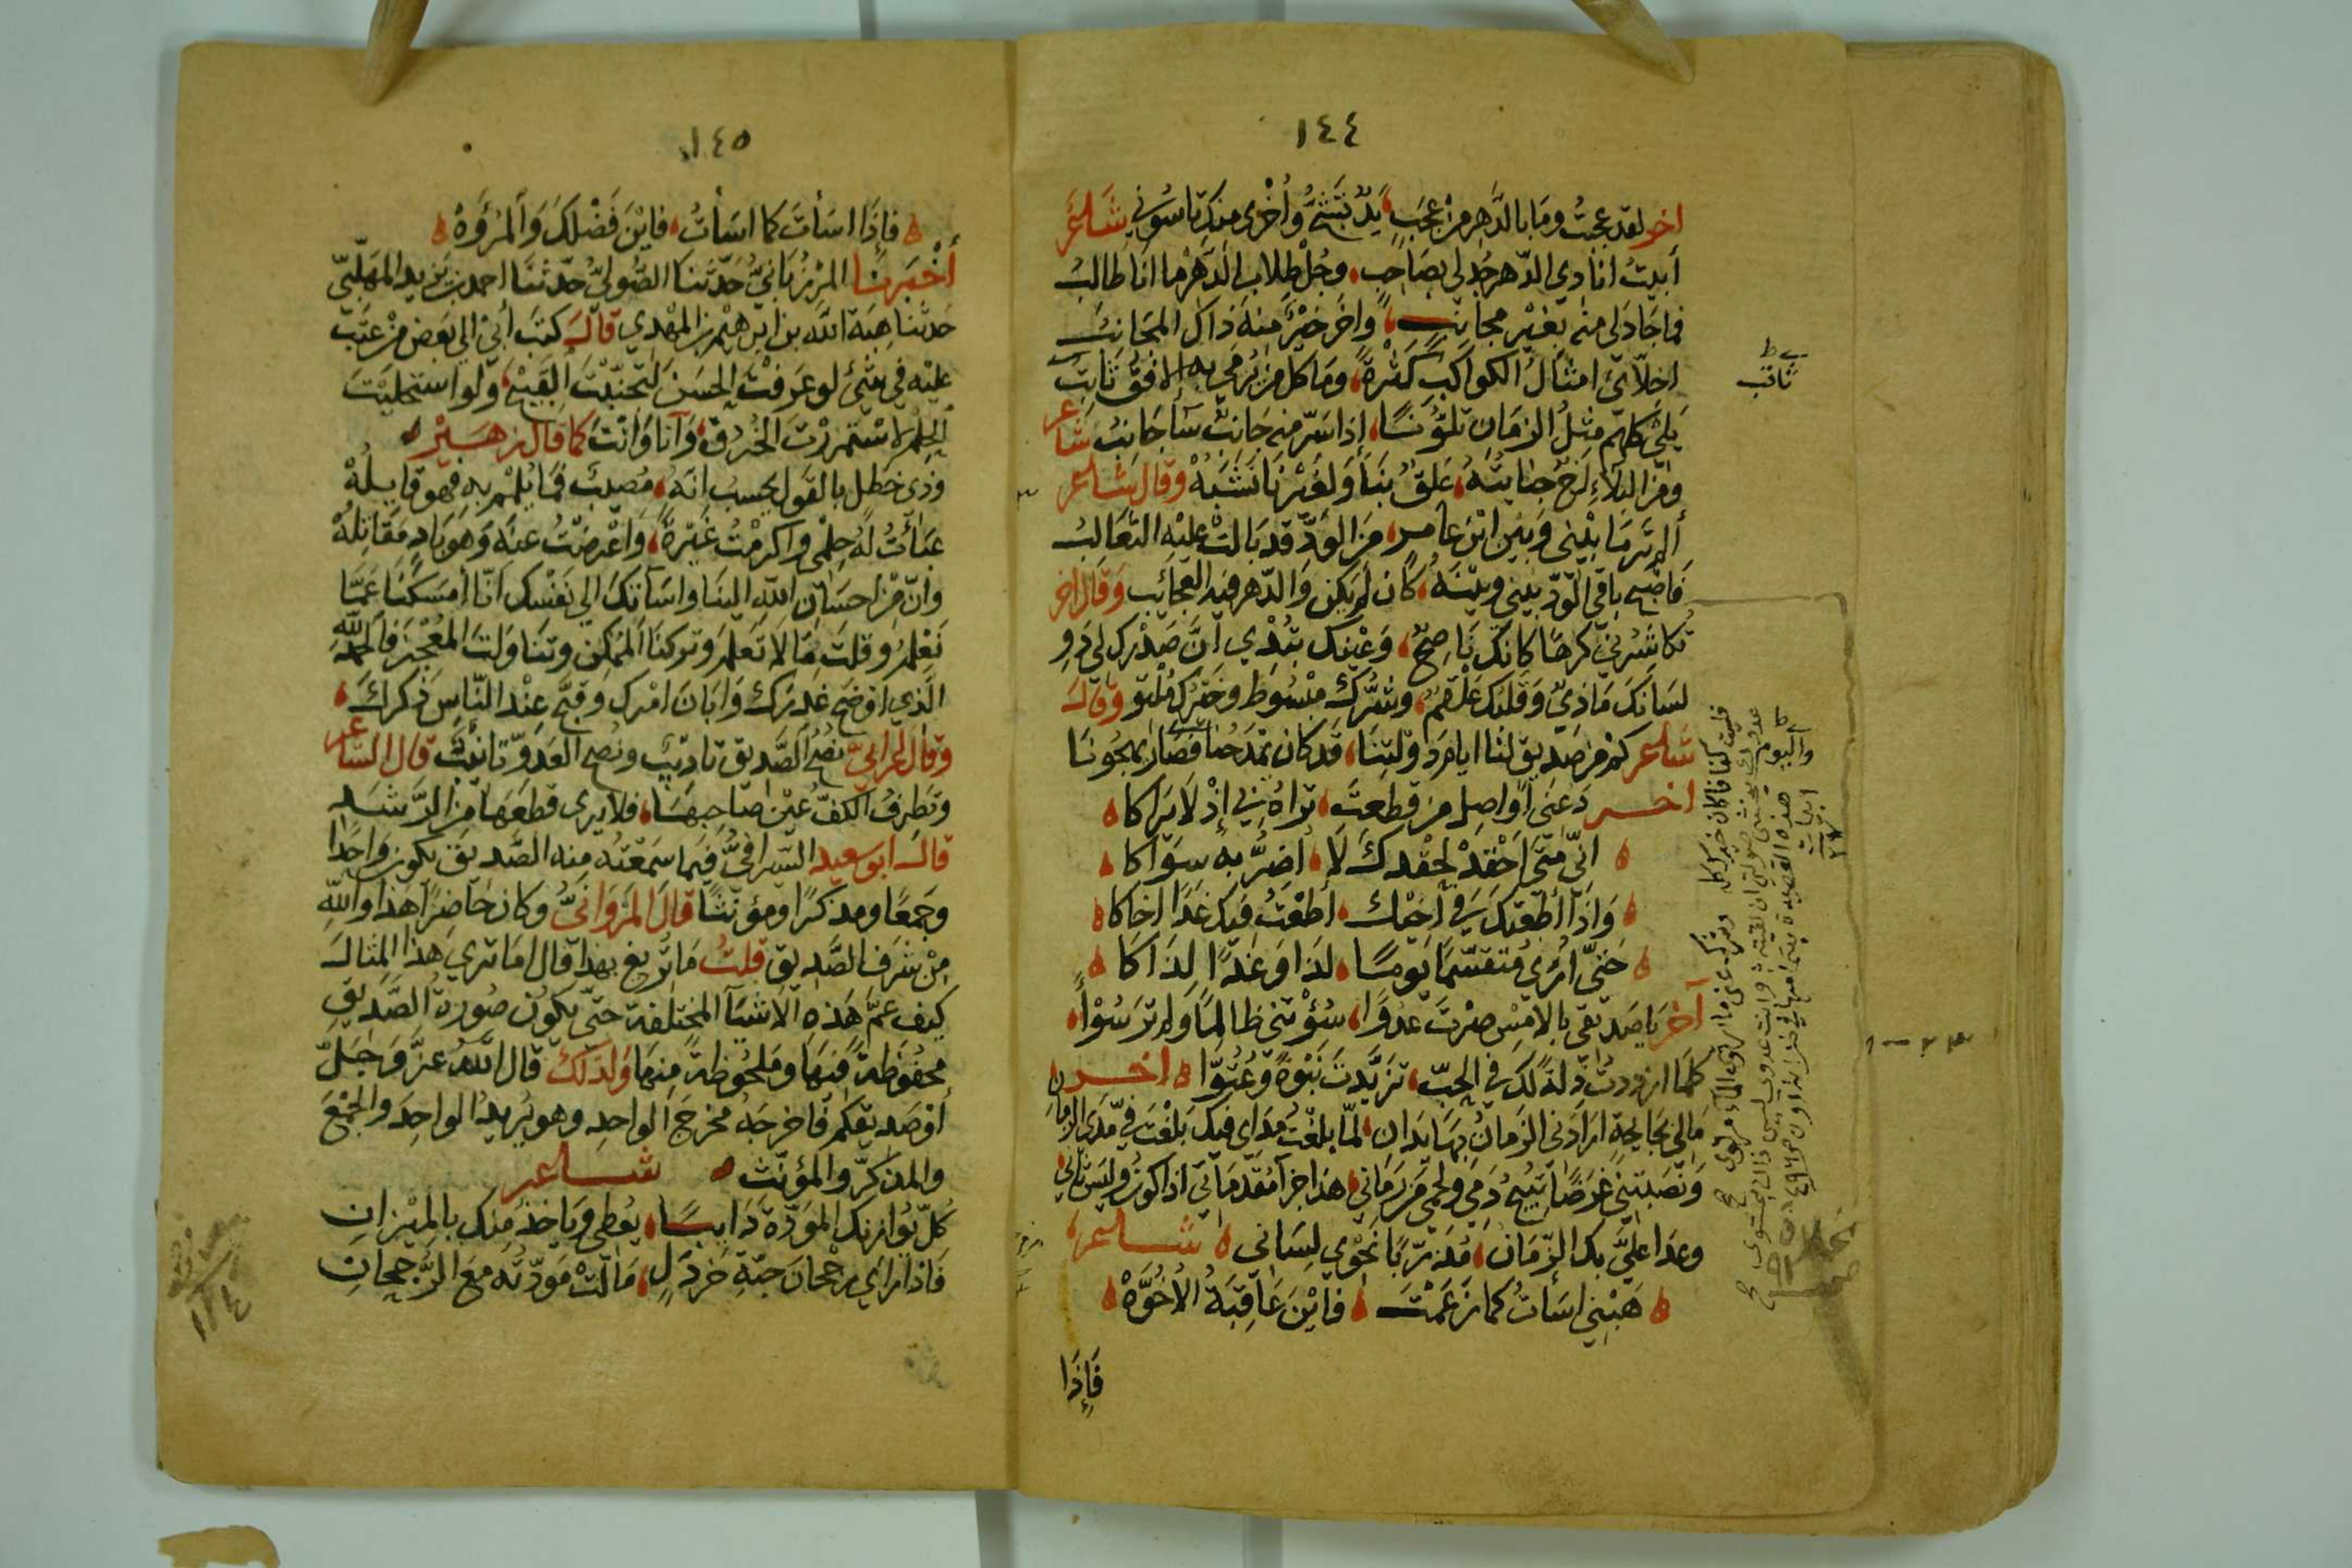 ١٤٤
اخر لقد عجبتُ وما بالدَّهر من عجبٍ، يدٌ تشجّ وأخرى منك تاسوني شاعر
أبيتُ انادي الدّهر جُد لي بصاحبٍ، وجُلّ طلاب الدّهر ما انا طالبُ
فما جاد لي منه بغير مجانبٍ، واخر خيرٌ منه ذاك المجانبُ
اخلّائي امثال الكواكب كثرةً، وما كل من يُرمى به الافق ثاقب
بلى كلهم مثل الزمان تلوّنًا، إذا سرّ منه جانبٌ سآ جانبُ شاعر
ومن البلاءِ اخٌ جنايتهُ، علقٌ بنا ولغيرنا نشبُهْ وقال شاعر
ألم تر ما بيني وبين ابن عامرٍ، من الودّ قد بالت عليه الثعالبُ
فاصبح باقي الودّ بيني وبينهُ، كان لم يكن والدّهر فيه العجائب وقال اخر
تُكاشرني كرهًا كانك ناصحٌ، وعينك تبدي أنّ صدرك لي دوِ
لسانك ماذيٌّ وقلبك علقمٌ، وشرّك مبسوط وخيرك ملتوِ وقال
شاعر كم من صديق لنا ايام دولتنا، قد كان يمدحنا فصار يهجونا
اخر دعني اواصل من قطعت، تراهُ بي إذ لا يراكا
انّي متى احقد لحقدك لا، أضرُّ به سواكا
واذا أطعتك في اخيك، اطعتُ فيك غدًا اخاكا
حتّى ارى متقسّمًا يومًا، لذا وغدًا لذاكا
آخر يا صديقي بالامس صرت عدوّا، سؤتني ظالمًا ولم تر سوْاً
كلما ازددت ذلةً لك في الحبّ، تزيّدت نبوةً وعُتوّا اخر
مالي بجايحةٍ ارادني الزمانُ بها يدان، لمّا بلغتُ مداي فيك بلغت فيّ مدى الزمان
ونصبتني غرضًا تبيح دمي ولحمي من رماني، هذا جزآ مقدماتي اذ اكون وليس ثاني
وعدا عليَّ بك الزّمان، مُدَرّبًا نحوي لساني شاعر
هبني اسأتُ كما زعمتَ، فاين عاقبة الأخوّهْ
فإذا
ثاقب
واليوم
١٤٥
فإذا اسأتَ كما اسأتُ، فاين فضلك والمروّهْ
أخبرنا المرزبانيُّ حدّثنا الصُّوليُّ حدّثنا احمد بن يزيد المهلّبيّ
حدثنا هبة الله بن ابرهيم بن المهدي قال كتب أبي الى بعض من عتب
عليه في شئ لو عرفت الحسن لتجنّبت القبيح، ولو استحليت
الحلم لاستمررت الخرق، وانا وانت كما قال زهير
وذي خطل بالقول يحسب انّهُ، مصيبٌ فما يلمم به فهو قايلُهْ
عبأتُ لهُ حلمي واكرمتُ غيرهُ، وأعرضتُ عنه وهو بادٍ مقاتلُهْ
وانّ من احسان الله الينا واسآتك الى نفسك انّا أمسكنا عمّا
نعلم وقلت ما لا تعلم وتركنا الممكن وتناولت المعجز فالحمد لله
الذي اوضح غدرك وابان امرك وقبّح عند النّاس ذكرك،
وقال اعرابيّ نصح الصّديق تاديب ونصح العدوّ تانيب قال الشاعر
وتطرف الكفُّ عين صاحبها، فلا يرى قطعها من الرَّشد
قال ابو سعيد السّيرافيُّ فيما سمعته منه الصّديق يكون واحدًا
وجمعًا ومذكرًا ومؤنثًا قال المروانيُّ وكان حاضرًا هذا والله
من شرف الصّديق قلتُ ما تريغ بهذا قال اما ترى هذا المثال
كيف عمّ هذه الاشيآ المختلفة حتى يكون صورة الصّديق
محفوظة فيها وملحوظة منها ولذلك قال الله عزّ وجلّ
أو صديقكم فاخرجه مخرج الواحد وهو يُريد الواحد والجمع
والمذكّر والمؤنث شاعر
كلّ يوازنك المودّة دايبًا، يُعطي وياخذ منك بالميزانِ
فاذا رأى رجحان حبّة خردلٍ، مالت مودّته مع الرُّجحانِ